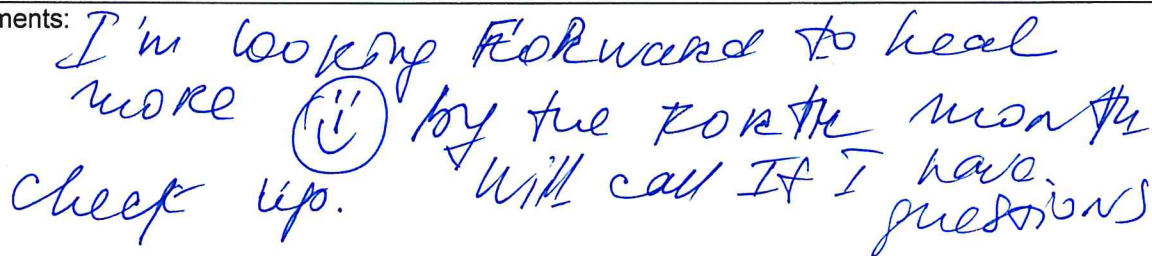 ments:
I'm looking Forward to heal
more by the forth month
check up. Will call If I have
questions